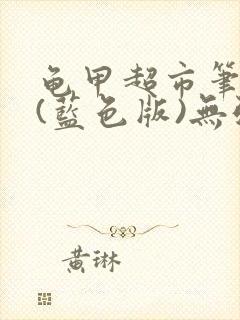 龟甲超市筆
(藍色版)無
黄琳